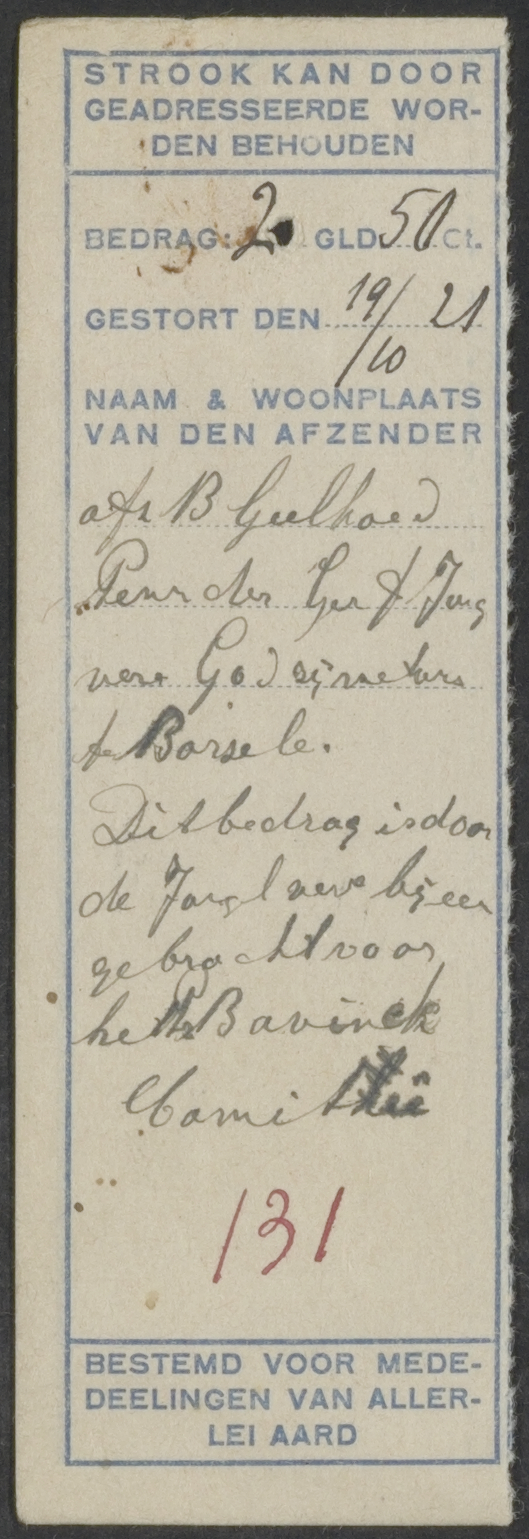 STROOK KAN DOOR
GEADRESSEERDE WOR-
DEN BEHOUDEN
BEDRAG: 2 GLD. 50 Ct.
GESTORT DEN 19/10 21
NAAM & WOONPLAATS
VAN DEN AFZENDER
afz B Geelhoed
Penr der Ger J Jong
vere God zij met ons
te Borsele.
Dit bedrag is door
de Jongl vere bijeen
gebracht voor
het Bavinck
Comitee
131
BESTEMD VOOR MEDE-
DEELINGEN VAN ALLER-
LEI AARD